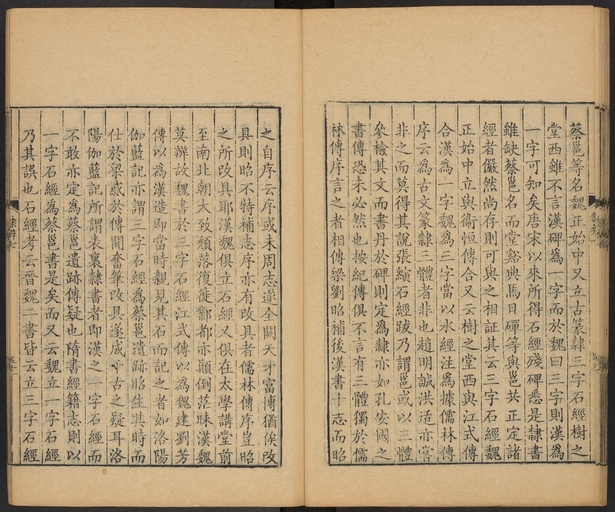 蔡邕等名魏正始中又立古篆隸三字石經樹之
堂西雖不言漢碑為一字而於魏曰三字則漢為
一字可知矣唐宋以來所得石經殘碑悉是隸書
雖缺蔡邕名而堂谿典馬日磾等與邕共正定諸
經者儼然尚存則可與之相証其云三字石經魏
正始中立與衞恒傳合又云樹之堂西與江式傳
合漢為一字魏為三字當以水經注為據儒林傳
序云為古文篆隸三體者非也趙明誠洪适亦言
非之而莫得其說張縯石經跋乃謂邕或以三體
參檢其文而書丹於碑則定為隸亦如孔安國之
書傳恐未必然也按紀傳俱不言有三體獨於儒
林傳序言之者相傳梁劉昭補後漢書十志而昭
之自序云序或未周志遂全闕天才富博猶俟改
具則昭不特補志序亦有改具者儒林傳序豈昭
之所改具耶漢魏俱立石經又俱在太學講堂前
至南北朝大致頹落復徙鄴都亦顛倒茫昧漢魏
莫辨故魏書於三字石經江式傳以為魏建劉芳
傳以為漢造即當時親見其石而記之者如洛陽
伽藍記亦謂三字石經為蔡邕遺跡昭生其時而
仕於梁惑於傳聞奮筆改具遂成千古之疑耳洛
陽伽藍記所謂表裏隸書者即漢之一字石經而
不敢亦定為蔡邕遺跡傳疑也隋書經籍志則以
一字石經為蔡邕書是矣而又云魏立一字石經
乃其誤也石經考云晉魏二書皆云立三字石經